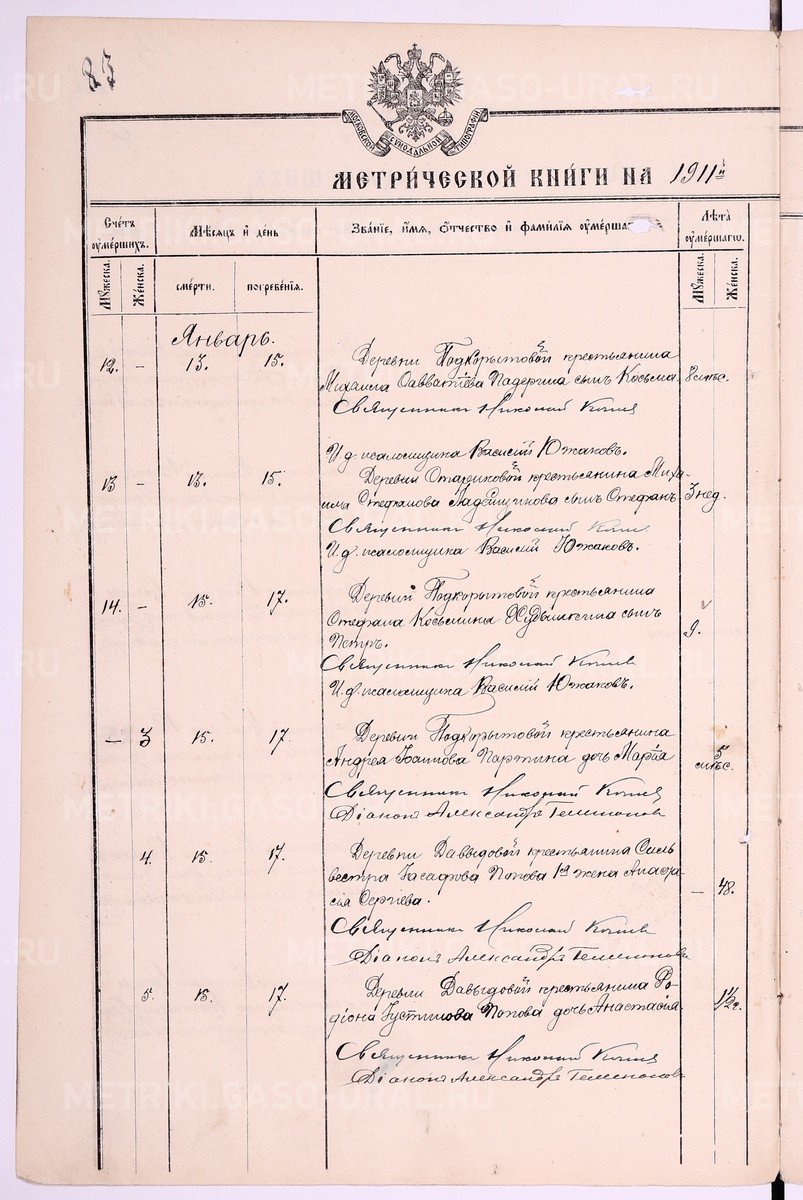 83
МОСКОВСКОЙ СѴНОДАЛЬНОЙ ТИПОГРАФІИ
МЕТРИЧЕСКОЙ КНИГИ НА 1911 й
Счетъ умершихъ.
Мѣсяцъ и день
Званіе, имя, отчество и фамилія умерша
Лѣта умершаго.
Мужеска.
Женска.
смерти.
погребенія.
Мужеска.
Женска.
Январь.
12. – 13. 15. Деревни Подкорытовой крестьянина
Михаила Савватіева Падерина сынъ Косьма. 8 мѣс.
Священникъ Николай
И.д. псаломщика Василій Южаковъ.
13 – 13. 15. Деревни Стариковой крестьянина Миха-
ила Стефанова сынъ Стефанъ 3 нед.
Священникъ Николай
И.д. псаломщика Василій Южаковъ.
14. – 15. 17. Деревни Подкорытовой крестьянина
Стефана Косьмина сынъ
Петръ. 9.
Священникъ Николай
И.д. псаломщика Василій Южаковъ.
– 3 15. 17. Деревни Подкорытовой крестьянина
Андрея Іоаннова Партина дочь Марія 5 мѣс.
Священникъ Николай
Діаконъ Александръ
4. 15. 17. Деревни Давыдовой крестьянина Силь
вестра Іасафова Попова 1я жена Анаста
сія Сергіева. – 48.
Священникъ Николай
Діаконъ Александръ
5. 15. 17. Деревни Давыдовой крестьянина Ро-
діона Іустинова Попова дочь Анастасія 1½ г.
Священникъ Николай
Діаконъ Александръ
METRIKI.GASO-URAL.RU